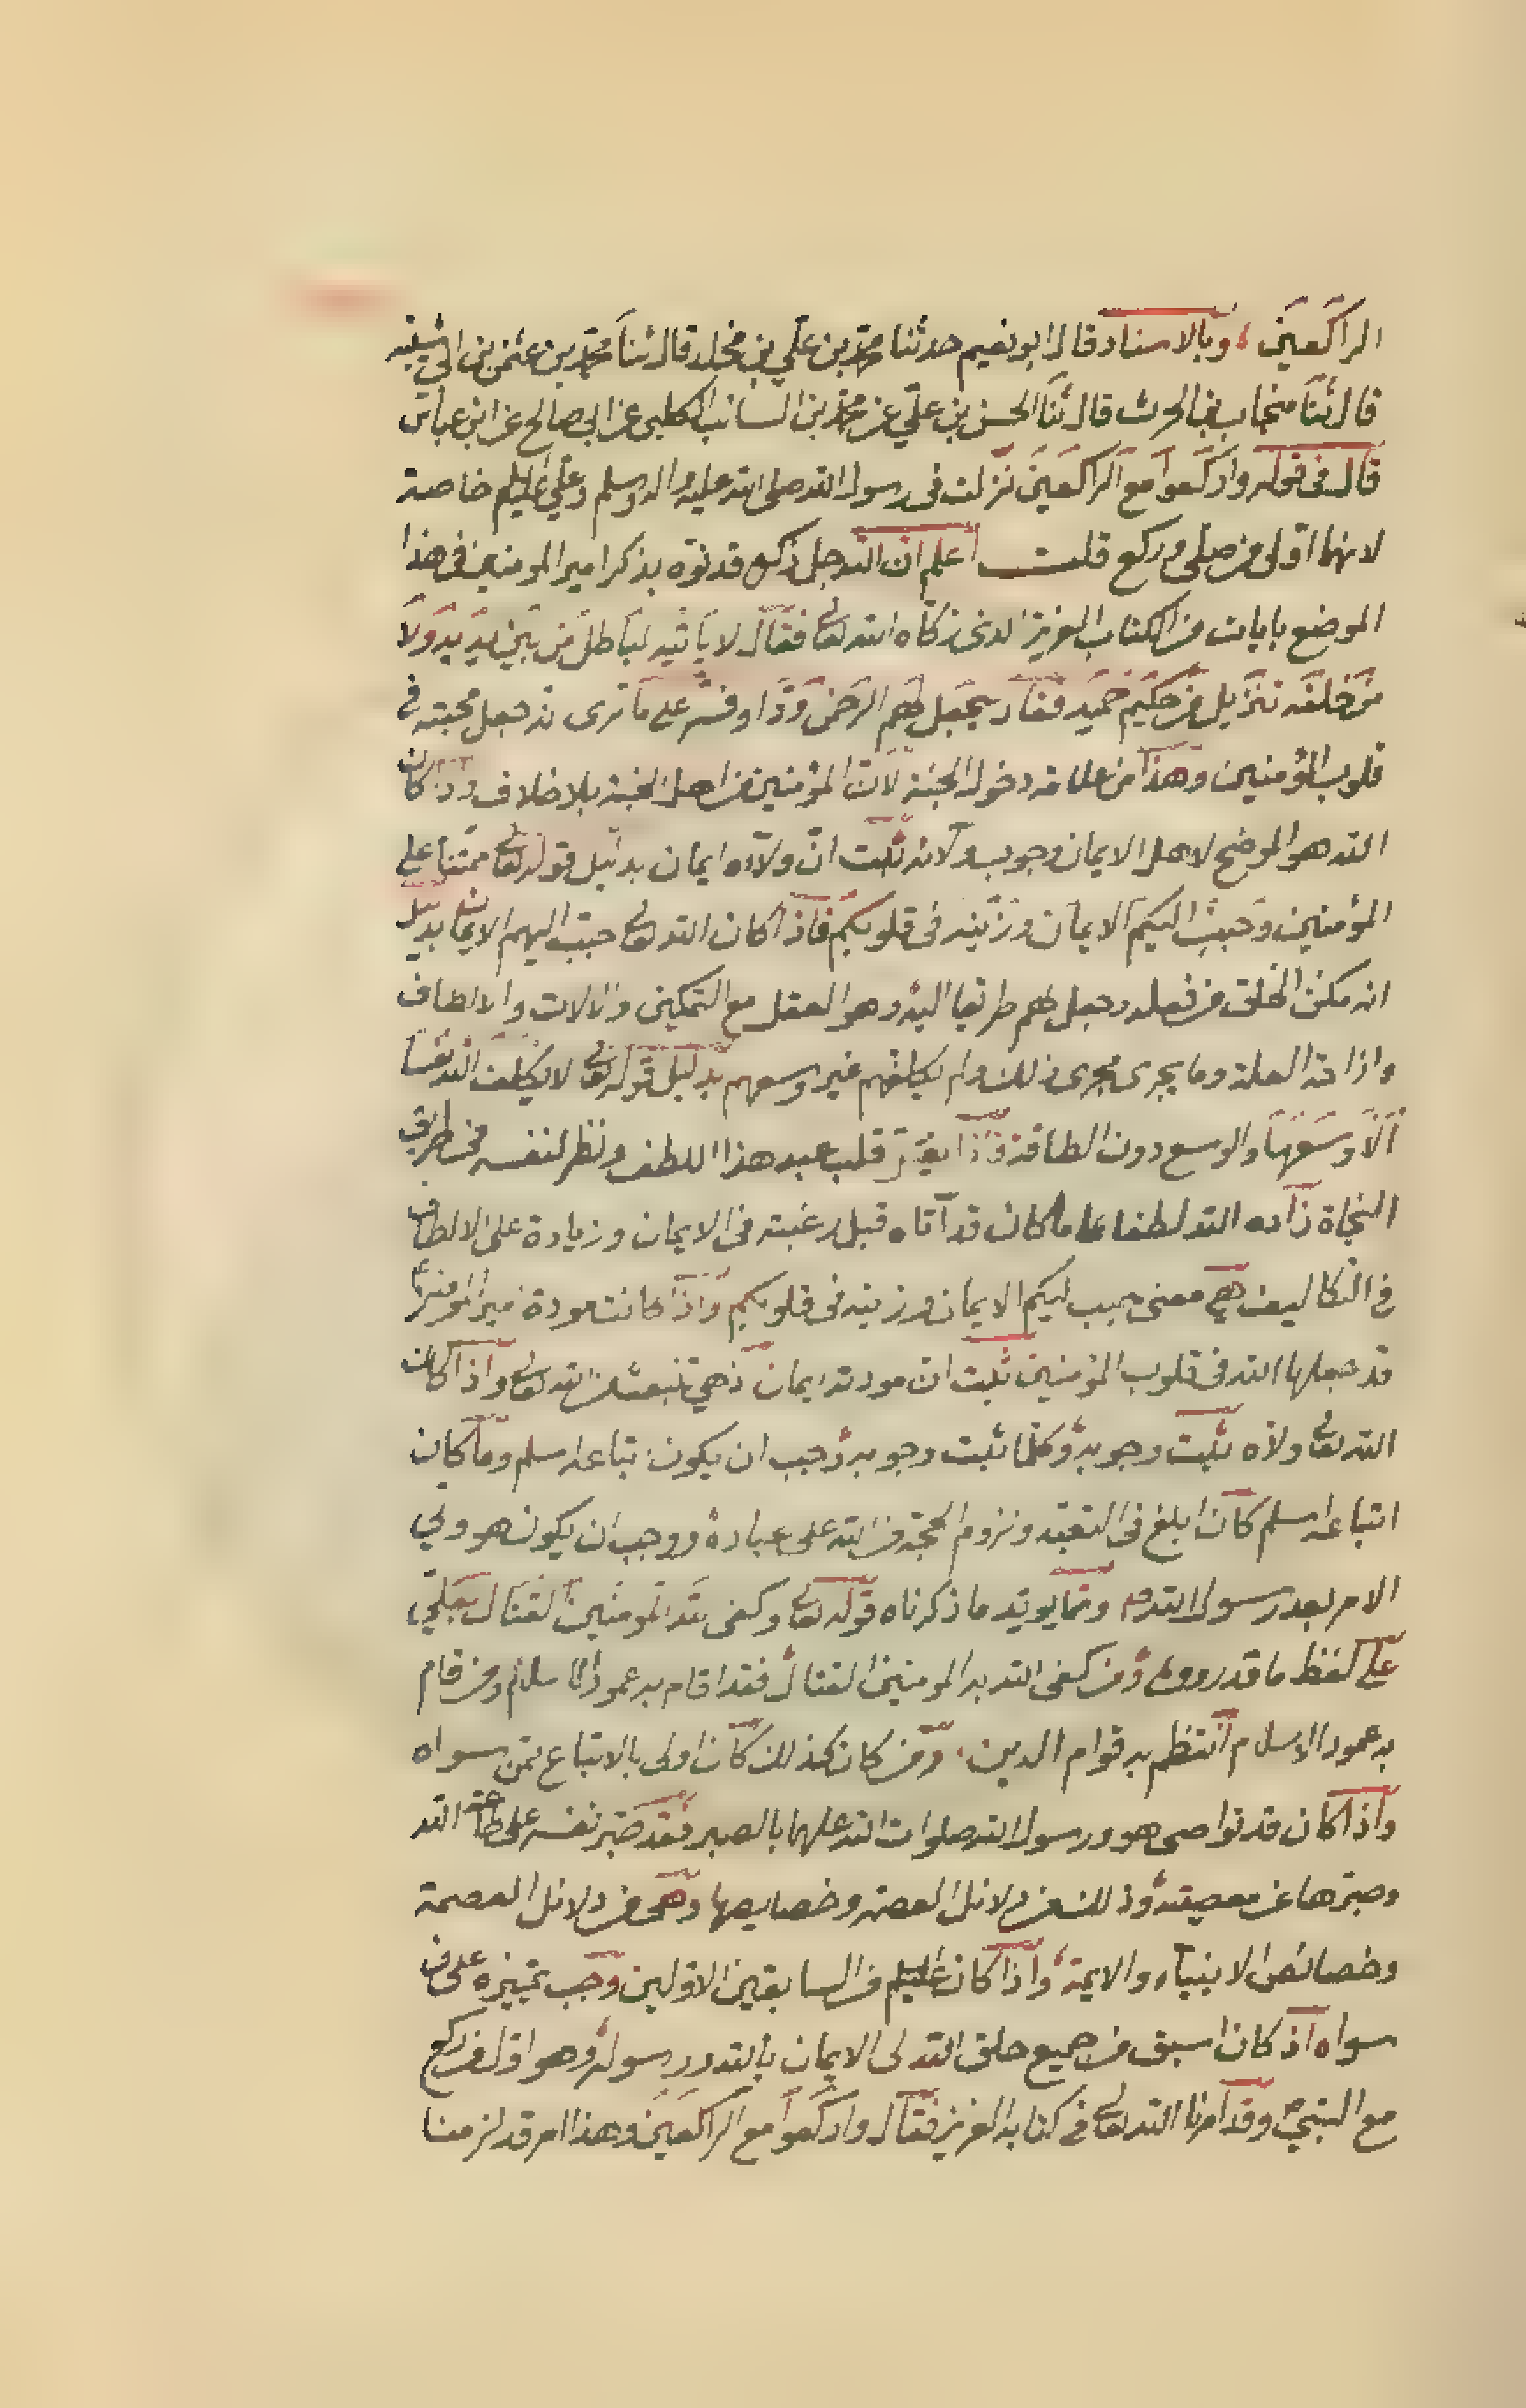 الراكعين ، وبالاسناد قال ابو نعيم حدثنا محمد بن علي بن مخلد قال ثنا محمد بن عثمن بن ابي شيبه
قال ثنا منجاب بن الحرث قال ثنا الحسن بن علي عن محمد بن السائب الكلبي عن ابي صالح عن ابن عباس
قال في قوله واركعوا مع الراكعين نزلت في رسول الله صلى الله عليه واله وسلم وعلي عليلم خاصة
لانهما اول من صلى وركع قلت اعلم ان الله جل ذكره قد نوه بذكر امير المومنين في هذا
الموضع بايات من الكتاب العزيز الذي زكاه الله تعالى فقال لا ياتيه لباطل من بين يديه ولا
من خلفه تنزيل من حكيم حميد فقال سيجعل لهم الرحمن ودا وفسر على ما ترى نه جعل محبته في
قلوب المؤمنين وهذا من علامة دخول الجنة لان المؤمنين من اهل الجنة بلا خلاف وذا كان
الله هو الموضح لاهل الايمان وجوب ولائه ثبت ان ولآه ايمان بدليل قوله تعالى ممتنا على
المؤمنين وحبب اليكم الايمان وزينه في قلوبكم فاذا كان الله تعالى حبب اليهم الايمان بدليل
انه مكن الخلق من فعله وجعل لهم طريقا اليه وهو العقل مع التمكين والالات والالطاف
وازاحة العلة وما يجري مجرى ذلك ولم يكلفهم غير وسعهم بدليل قوله تعالى لا يكلف الله نفسا
الا وسعها والوسع دون الطاقة فاذا قلب عبد هذا اللطف ونظر لنفسه في طريق
النجاة زاده الله لطفا على ما كان قد آتاه قبل رغبته في الايمان وزيادة على الالطاف
في التكاليف هي معنى حبب ليكم الايمان وزينه في قلوبكم واذا كانت مودة مير المومنين
قد جعلها الله في قلوب المؤمنين ثبت ان مودته ايمان ذهي تنبعث من الله تعالى واذا كان
الله تعالى ولاه ثبت وجوبه وكلما ثبت وجوبه وجب ان يكون تباعه اسلم وما كان
اتباعه اسلم كان ابلغ في التعبد ولزوم الحجة من الله على عباده ووجب ان يكون هو ولي
الامر بعد رسول الله وممّا يويد ما ذكرناه قوله تعالى وكفى الله المومنين القتال بعلي
على لفظ ما قدروى ومن كفى الله به المومنين القتال فقد اقام به عمود الاسلام ومن قام
به عمود الاسلام انتظم به قوام الدين ، ومن كان كذلك كان اولى بالاتباع ممن سواه
واذا كان قد تواصى هو ورسول الله صلوات الله عليهما بالصبر فقد صبر نفسه على طاعة الله
وصبرها عن معصيته وذلك من دلائل العصمة وخصايصها وهى من دلائل العصمة
وخصائص الانبياء والايمة واذا كان عليلم من السابقين الاولين وجب تمييزه على من
سواه اذ كان اسبق من جميع خلق الله لى الايمان بالله ورسوله وهو اول من ركع
مع النبي وقد امرنا الله تعالى في كتابه العزيز فقال واركعوا مع الراكعين وهذا امر قد لزمنا